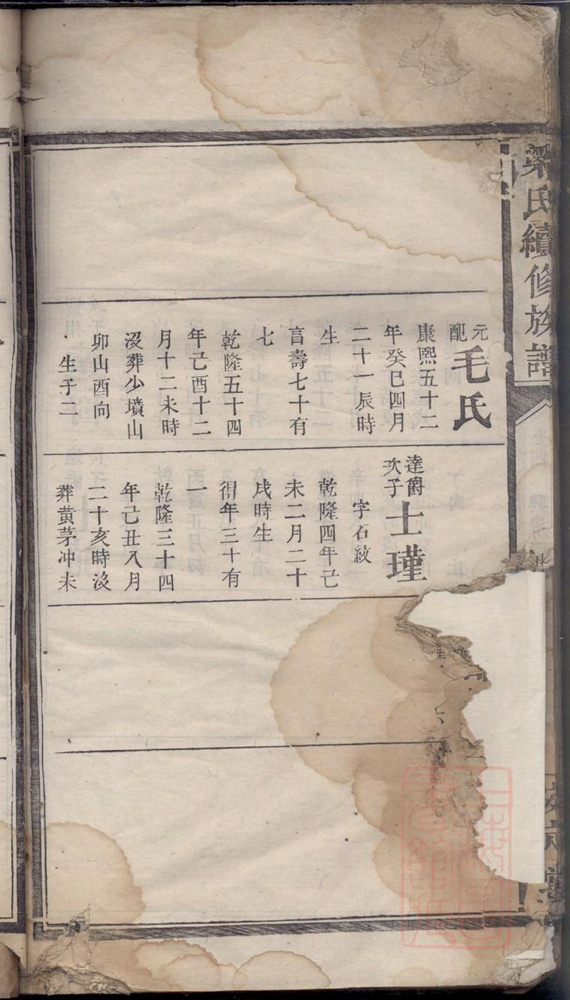 氏續修族譜
元配毛氏
康熙五十二
年癸巳四月
二十一辰時
生
享壽七十有
七
乾隆五十四
年己酉十二
月十二未時
沒葬少墳山
卯山酉向
生子二
達爵次子士瑾
字石紋
乾隆四年己
未二月二十
戌時生
得年三十有
一
乾隆三十四
年己丑八月
二十亥時沒
葬黄茅冲未